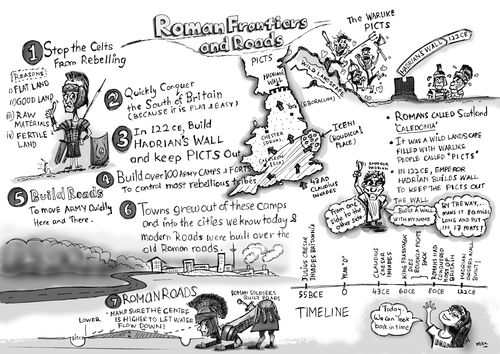 Roman Frontiers
and Roads
1 Stop the Celts
From Rebelling
Reasons
i) FLAT LAND
ii) GOOD LAND
iii) RAW
MATERIALS
iv) FERTILE
LAND
2 Quickly Conquer
the South of Britain
(BECAUSE IT IS FLAT & EASY)
3 In 122 CE, Build
HADRIAN'S WALL
and keep PICTS OUT
4 Build over 100 ARMY CAMPS & FORTS
To control most rebellious tribes
5 Build Roads
To move ARMY Quickly
Here and There.
6 Towns grew out of these camps
and into the cities we know today &
modern Roads were built over the
old Roman roads.
7 ROMAN ROADS
- MAKE SURE THE CENTRE
IS HIGHER TO LET WATER
FLOW DOWN!
LOWER
ROMAN SOLDIERS
BUILT ROADS
PICTS
HADRIAN
WALL
WILD LANDSCAPE
York
(EBORACUM)
CHESTER
(DEVA)
CAERLEON
ICENI
(BOUDICCA'S
PLACE)
43 AD
CLAUDIUS
INVADES
THE WARLIKE
PICTS
HADRIAN'S WALL 122CE
• ROMANS CALLED SCOTLAND
'CALEDONIA'
• IT WAS A WILD LANDSCAPE
FILLED WITH WARLIKE
PEOPLE CALLED "PICTS"
• IN 122CE, EMPEROR
HADRIAN BUILDS WALL
TO KEEP THE PICTS OUT
EMPEROR
HADRIAN
THE WALL
From one
side to the
other side
BUILD A WALL
WITH MY NAME
BY THE WAY...
MAKE IT 80 MILES
LONG AND PUT
IN 17 FORTS!
JULIUS CAESAR
INVADES BRITANNIA
YEAR "0"
CLAUDIUS
CAESAR
INVADES
KING PRASUTAGUS
DIES
BOUDICCA FIGHTS
BACK
ROMANS HAD
CONQUERED
MOST OF
BRITAIN
HADRIAN
ORDERS WALL
BUILT!
55BCE
0
43CE
60CE
80CE
122CE
TIMELINE
Today
We can look
back in time